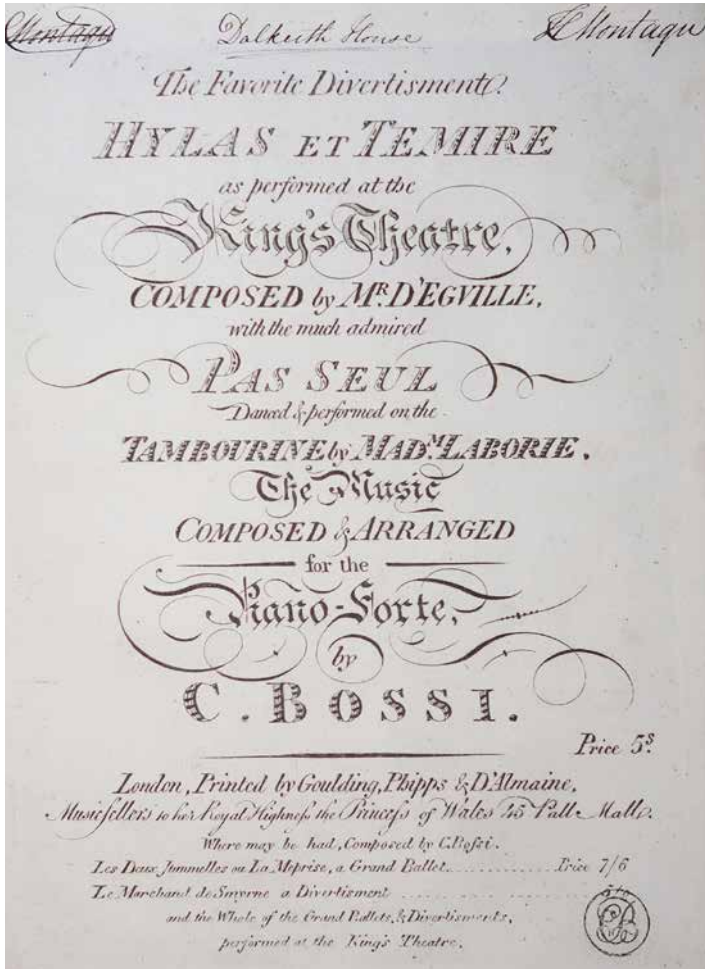 Montagu Dalkeith House E Montagu
The Favorite Divertisment.
HYLAS ET TEMIRE
as performed at the
King's Theatre,
COMPOSED by MR. D'EGVILLE,
with the much admired
PAS SEUL
Danced & performed on the
TAMBOURINE by MADM. LABORIE.
The Music
COMPOSED & ARRANGED
for the
Piano-Forte,
by
C. BOSSI.
Price 5s.
London, Printed by Goulding, Phipps & D'Almaine,
Musicsellers to her Royal Highness the Princess of Wales 45 Pall Mall.
Where may be had, Composed by C. Bossi.
Les Deux Jummelles ou La Meprise, a Grand Ballet.................Price 7/6
Le Marchand de Smyrne a Divertisment
and the Whole of the Grand Ballets, & Divertisments,
performed at the King's Theatre.